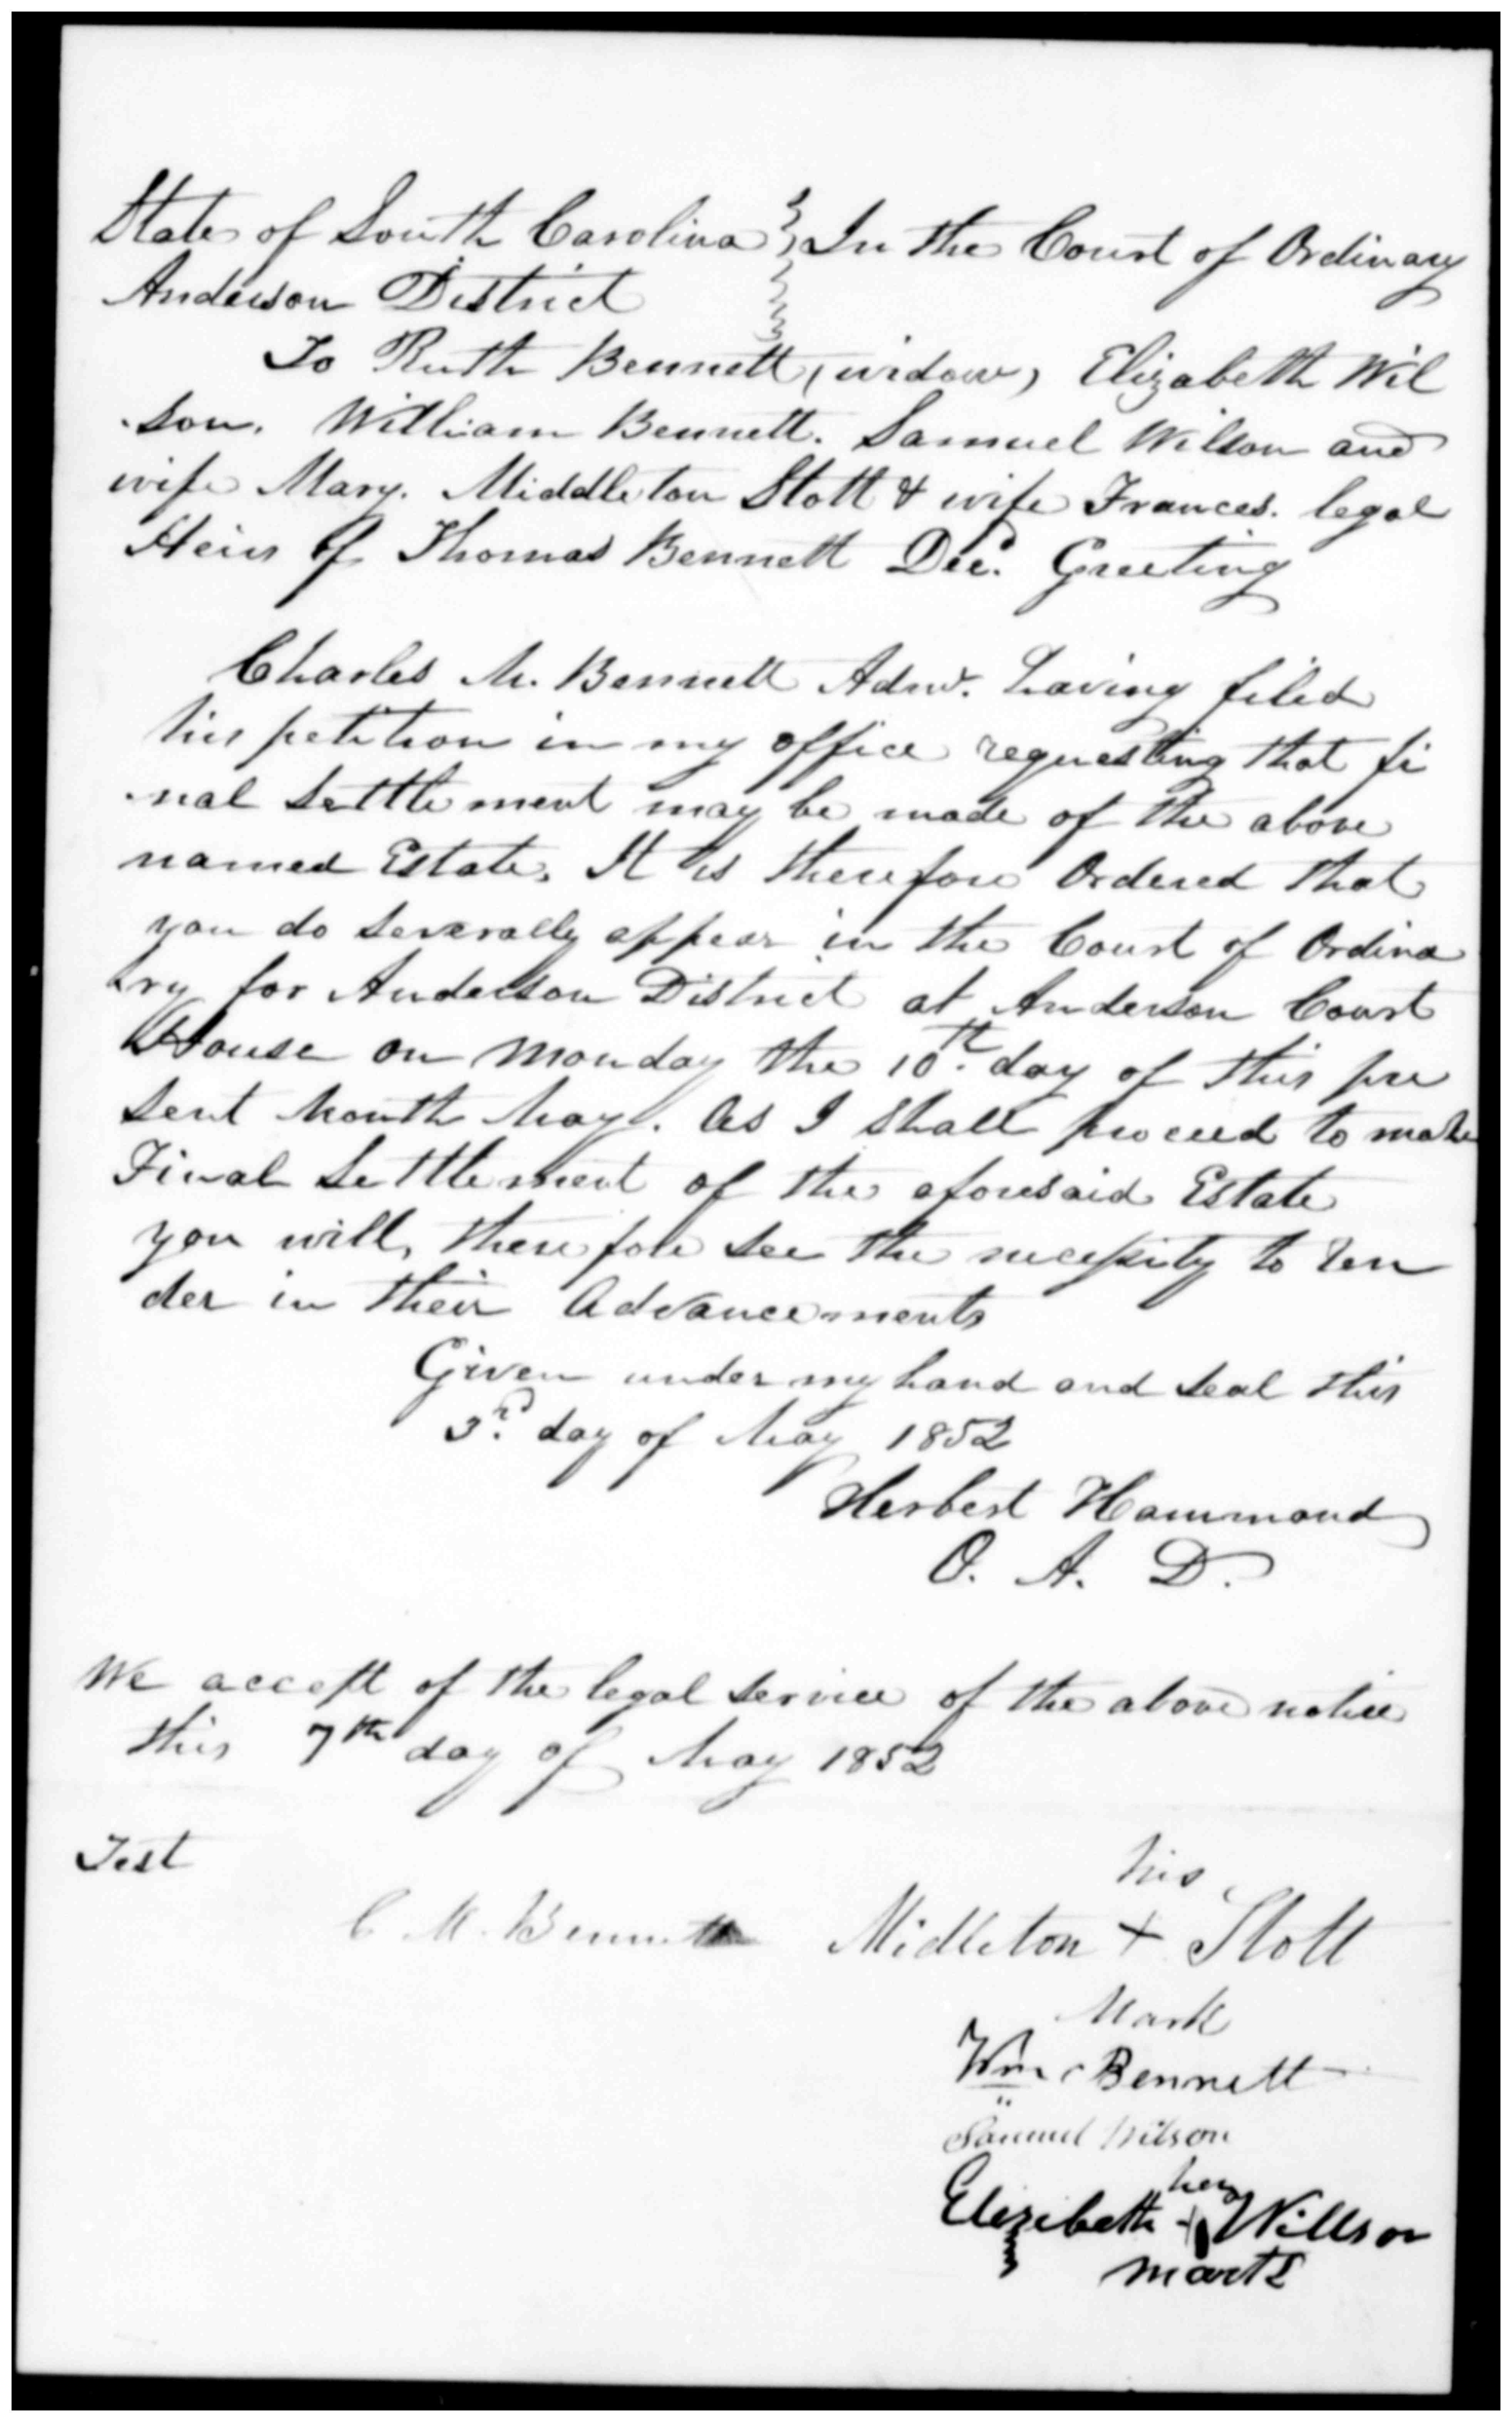 State of South Carolina } In the Court of Ordinary
Anderson District
To Ruth Bennett (widow) Elizabeth Wil
-son. William Bennett. Samuel Wilson and
wife Mary. Middleton Stott & wife Frances. legal
Heirs of Thomas Bennett Decd. Greeting
Charles M. Bennett Admr. having filed
his petition in my office requesting that fi
-nal settlement may be made of the above
named Estate. It is therefore Ordered that
you do severally appear in the Court of Ordina
ry for Anderson District at Anderson Court
House on Monday the 10th day of this pre
sent Month May. As I shall proceed to make
Final Settlement of the aforesaid Estate
you will, therefore see the necessity to ren
der in their Advancements
Given under my hand and seal this
3d. day of May 1852
Herbert Hammond
O. A. D.
We accept of the legal service of the above notice
this 7th day of May 1852
Test
his
C M. Bennett Midleton + Stott
Mark
Wm Bennett
Samuel Wilson
her
Elizibeth + Willson
mark